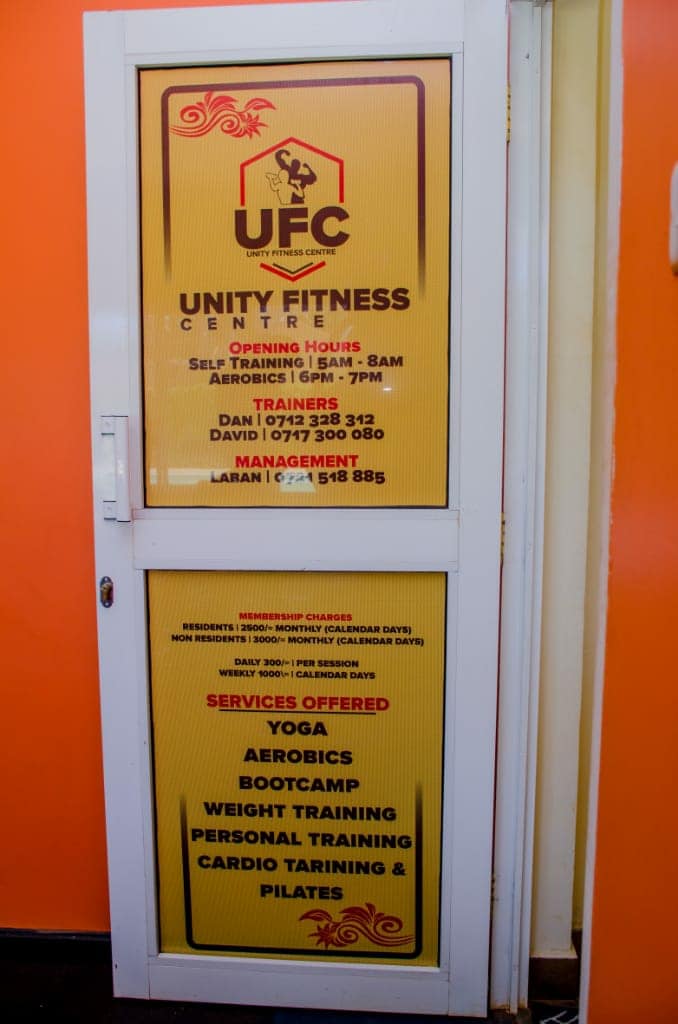 UFC
UNITY FITNESS CENTRE
UNITY FITNESS
CENTRE
OPENING HOURS
SELF TRAINING | 5AM - 8AM
AEROBICS | 6PM - 7PM
TRAINERS
DAN | 0712 328 312
DAVID | 0717 300 080
MANAGEMENT
LABAN | 0721 518 885
MEMBERSHIP CHARGES
RESIDENTS | 2500/= MONTHLY (CALENDAR DAYS)
NON RESIDENTS | 3000/= MONTHLY (CALENDAR DAYS)
DAILY 300/= | PER SESSION
WEEKLY 1000\= | CALENDAR DAYS
SERVICES OFFERED
YOGA
AEROBICS
BOOTCAMP
WEIGHT TRAINING
PERSONAL TRAINING
CARDIO TARINING &
PILATES